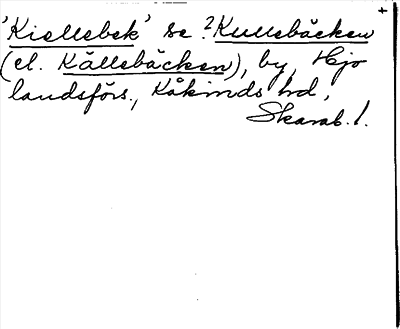 +
'Kiellebek' se ?Kullebäcken
(el. Källebäcken), by, Hjo
landsförs., Kåkinds hd,
Skarab. l.